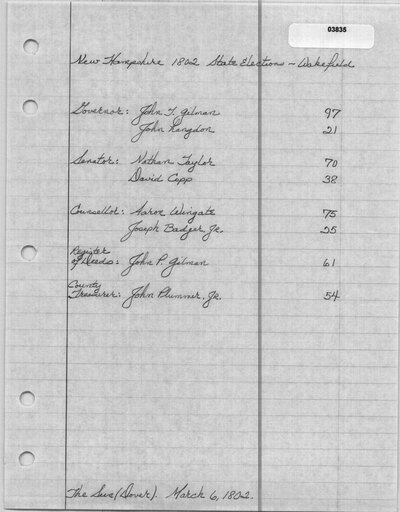 03835
New Hampshire 1802 State Election - Wakefield
Governor: John T. Gilman 97
John Langdon 21
Senator: Nathan Taylor 70
David Copp 38
Counsellor: Aaron Wingate 75
Joseph Badger, Jr. 25
Register
of Deeds: John P. Gilman 61
County
Treasurer: John Plummer, Jr. 54
The Sun (Dover). March 6, 1802.